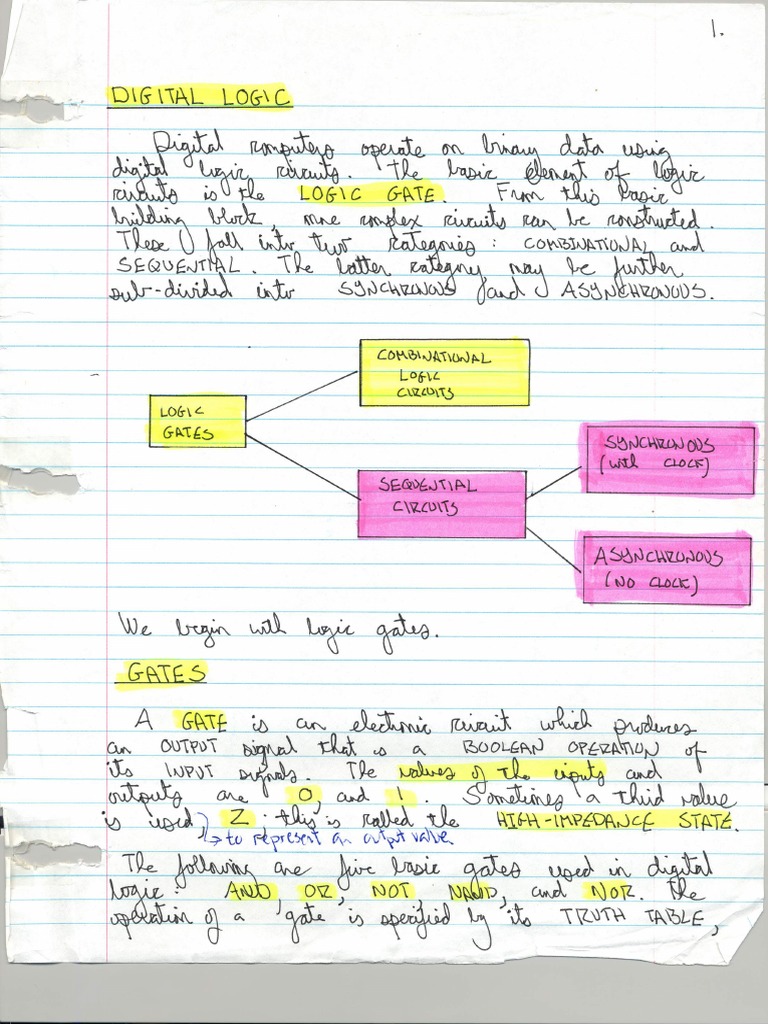 1.
DIGITAL LOGIC
Digital computers operate on binary data using
digital logic circuits. The basic element of logic
circuits is the LOGIC GATE. From this basic
building block, more complex circuits can be constructed.
These fall into two categories: COMBINATIONAL and
SEQUENTIAL. The latter category may be further
sub-divided into SYNCHRONOUS and ASYNCHRONOUS.
COMBINATIONAL
LOGIC
CIRCUITS
LOGIC
GATES
SEQUENTIAL
CIRCUITS
SYNCHRONOUS
(with CLOCK)
ASYNCHRONOUS
(NO CLOCK)
We begin with logic gates.
GATES
A GATE is an electronic circuit which produces
an OUTPUT signal that is a BOOLEAN OPERATION of
its INPUT signals. The values of the inputs and
outputs are 0, and 1. Sometimes a third value
is used Z: this is called the HIGH-IMPEDANCE STATE.
→ to represent an output value
The following are five basic gates used in digital
logic: AND, OR, NOT, NAND, and NOR. The
operation of a gate is specified by its TRUTH TABLE,